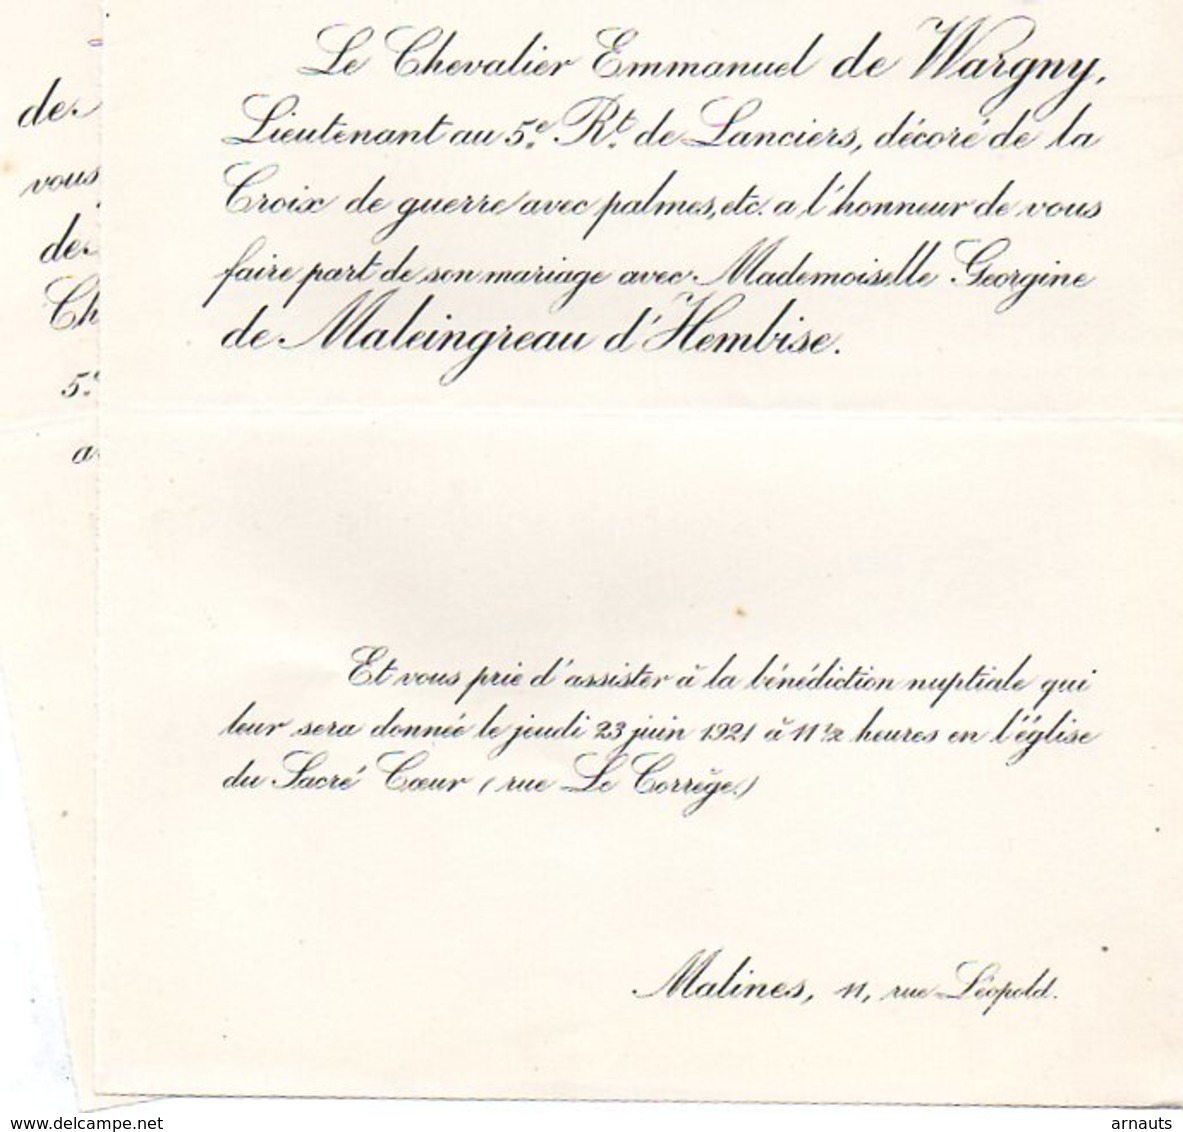 de
vous
de
Ch
5.e
a
Le Chevalier Emmanuel de Wargny,
Lieutenant au 5.e R.t de Lanciers, décoré de la
Croix de guerre avec palmes, etc. a l'honneur de vous
faire part de son mariage avec Mademoiselle Georgine
de Maleingreau d'Hembise.
Et vous prie d'assister à la bénédiction nuptiale qui
leur sera donnée le jeudi 23 juin 1921 à 11 1/2 heures en l'église
du Sacré Cœur (rue Le Corrège.)
Malines, 11, rue Léopold.
www.delcampe.net
arnauts